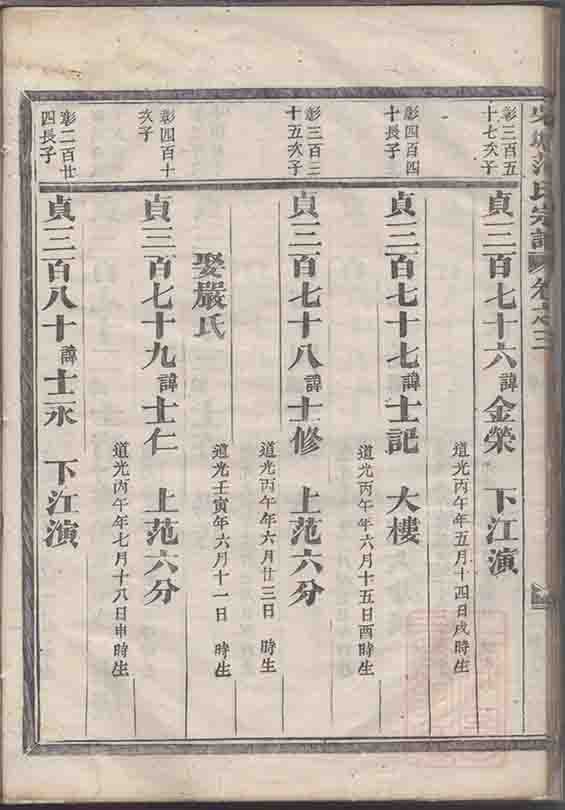 范氏宗譜 卷之三
彰三百五
十七次子
貞三百七十六 諱金榮 下江演
道光丙午年五月十四日戌時生
彰四百四
十長子
貞三百七十七 諱士記 大樓
道光丙午年六月十五日酉時生
彰三百三
十五次子
貞三百七十八 諱士修 上范六分
道光丙午年六月廿三日 時生
娶嚴氏
道光壬寅年六月十一日 時生
彰四百十
次子
貞三百七十九 諱士仁 上范六分
道光丙午年七月十八日申時生
彰二百廿
四長子
貞三百八十 諱士永 下江演